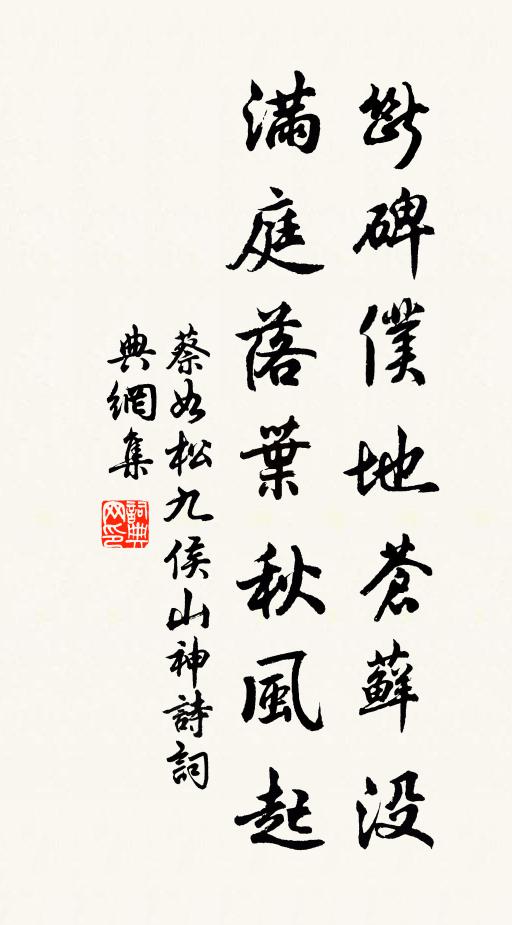 斷碑僕地蒼蘚没
滿庭落葉秋風起
蔡如松九侯山神詩詞
典網集
詞典網印